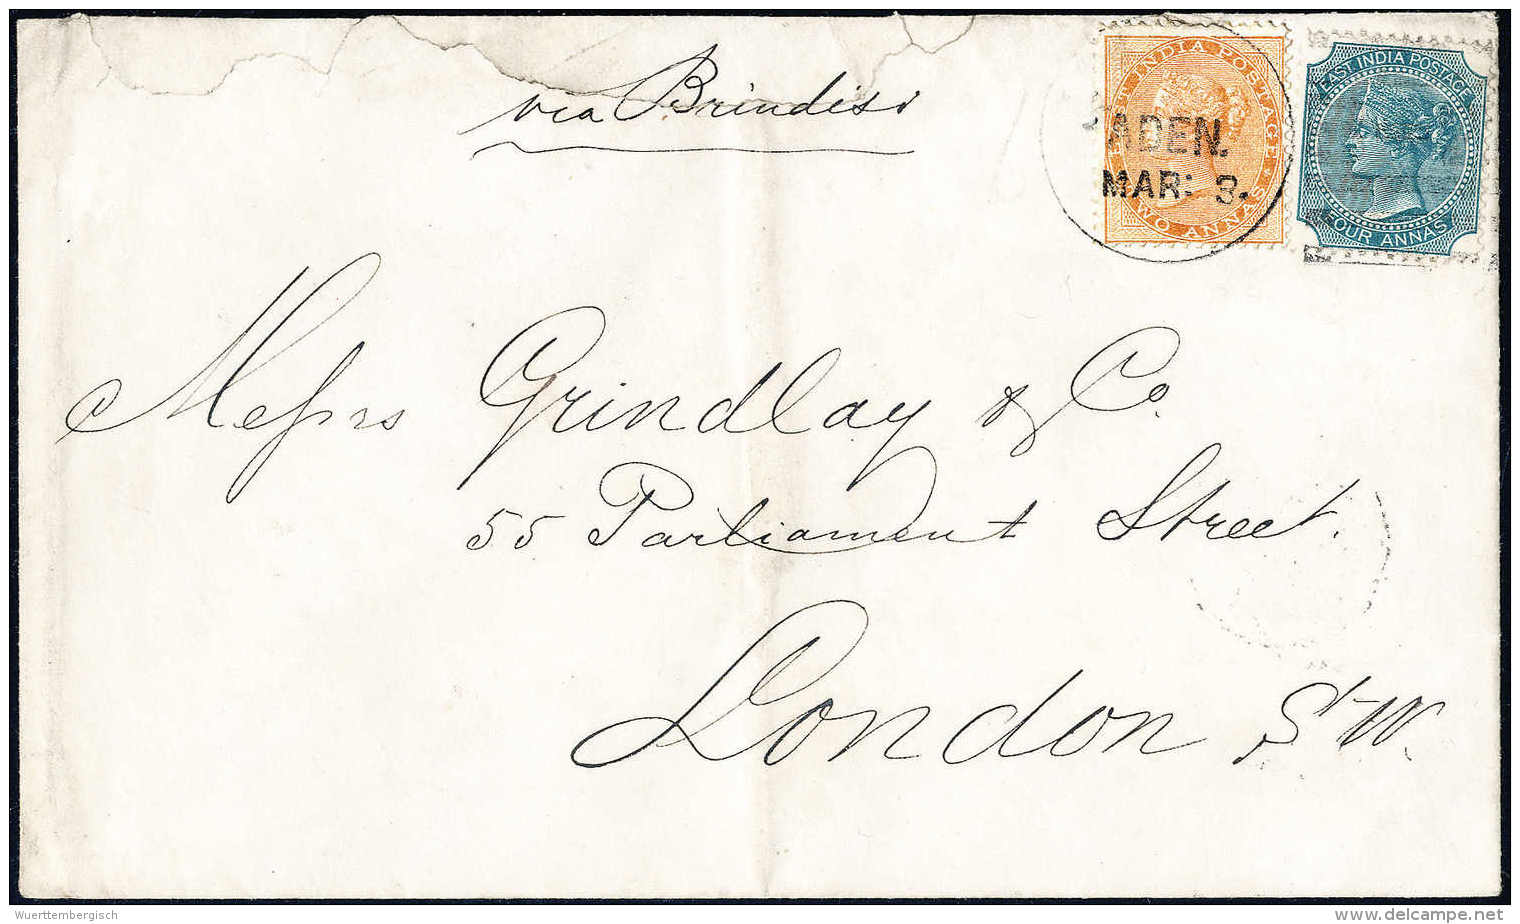 via Brindisi
EAST INDIA POSTAGE
TWO ANNAS
ADEN.
MAR: 3.
EAST INDIA POSTAGE
FOUR ANNAS
Messrs Grindlay & Co.
55 Parliament Street.
London S.W.
Wuerttembergisch
www.delcampe.net